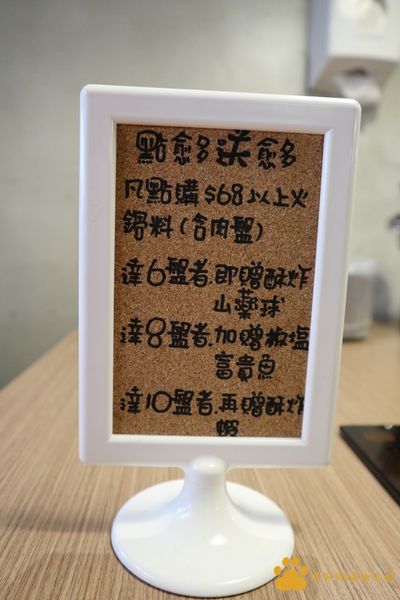 點愈多送愈多
凡點購$68以上火
鍋料(含肉盤)
達6盤者即贈酥炸
山藥球
達8盤者加贈椒塩
富貴魚
達10盤者再贈酥炸
蝦